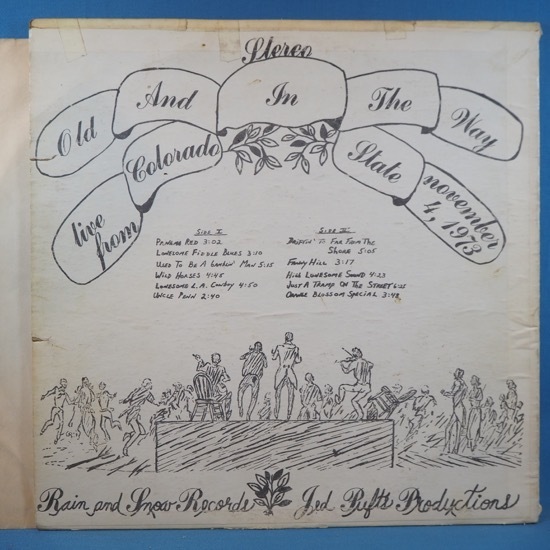 Stereo
Old And In The Way
live from Colorado State november 4, 1973
Side I
Panama Red 3:02
Lonesome Fiddle Blues 3:10
Used To Be A Gamblin' Man 5:15
Wild Horses 4:45
Lonesome L.A. Cowboy 4:50
Uncle Penn 2:40
Side II
Driftin' To Far From The
Shore 5:05
Fanny Hill 3:17
High Lonesome Sound 4:23
Just A Tramp On The Street 6:25
Orange Blossom Special 3:48
Rain and Snow Records Jed Pufts Productions